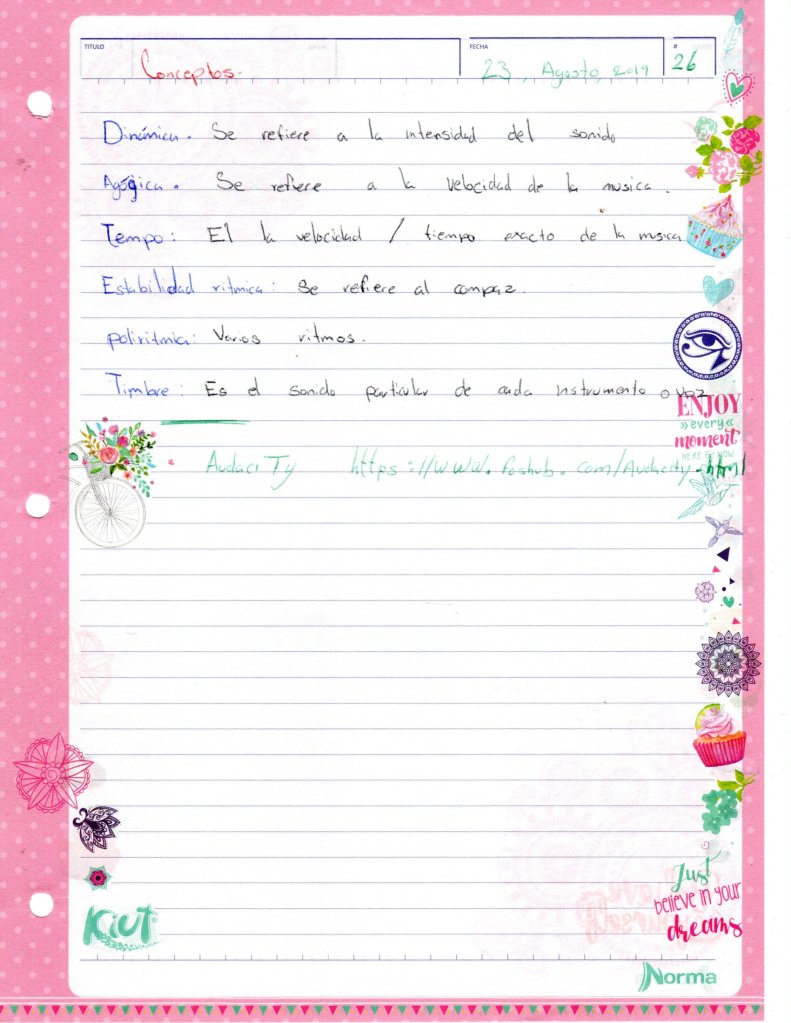 TITULO Conceptos. FECHA 23, Agosto, 2019 # 26
Dinámica. Se refiere a la intensidad del sonido
Agógica. Se refiere a la velocidad de la musica.
Tempo: El la velocidad / tiempo exacto de la musica
Estabilidad ritmica: Se refiere al compaz.
poliritmia: Varios ritmos.
Timbre: Es el sonido particular de cada instrumento o voz
ENJOY
»every«
moment
HERE & NOW
AudaciTy https://www.foshub.com/Audacity.html
Just
believe in your
dreams
Kiut
Norma